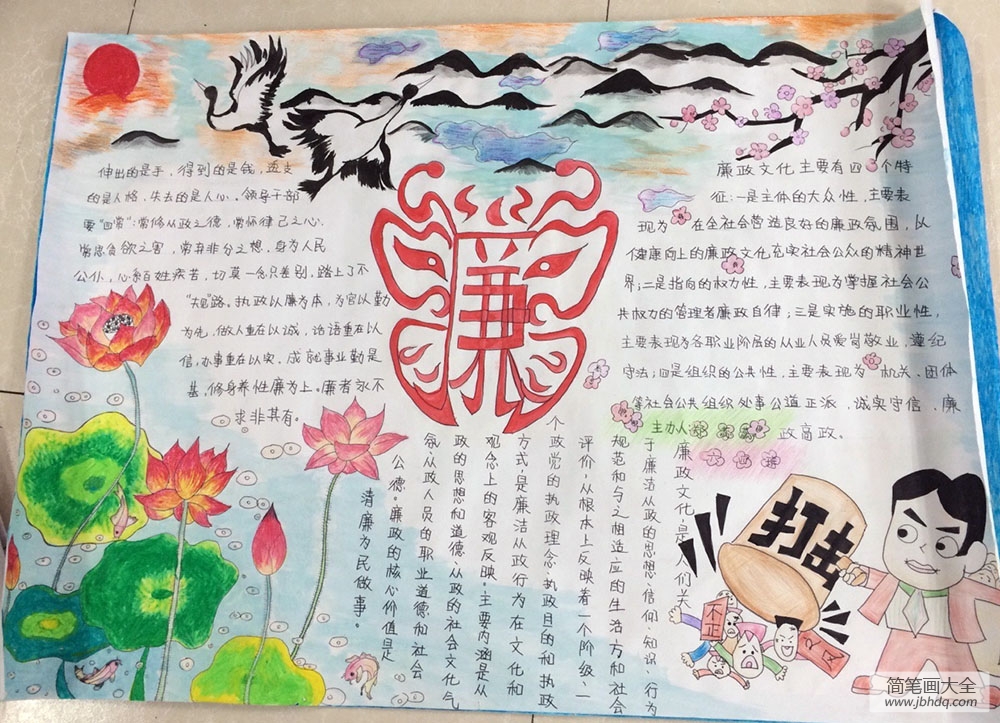 伸出的是手，得到的是钱，透支
的是人格，失去的是人心。领导干部
要"四常"：常修从政之德，常怀律己之心，
常思贪欲之害，常弃非分之想。身为人民
公仆，心系百姓疾苦，切莫一念只差别，踏上了不
"归"路。执政以廉为本，为官以勤
为先，做人重在以诚，话语重在以
信，办事重在以实。成就事业勤是
基，修身养性廉为上。廉者永不
求非其有。
廉
廉政文化主要有四个特
征：一是主体的大众性，主要表
现为在全社会营造良好的廉政氛围，以
健康向上的廉政文化充实社会公众的精神世
界；二是指向的权力性，主要表现为掌握社会公
共权力的管理者廉政自律；三是实施的职业性，
主要表现为各职业阶层的从业人员爱岗敬业，遵纪
守法；四是组织的公共性，主要表现为机关、团体
等社会公共组织处事公道正派，诚实守信，廉
政高政。
主办人
廉政文化，是人们关
于廉洁从政的思想、信仰、知识、行为
规范和与之相适应的生活方和社会
评价，从根本上反映着一个阶级、一
个政党的执政理念、执政目的和执政
方式，是廉洁从政行为在文化和
观念上的客观反映。主要内涵是从
政的思想和道德、从政的社会文化气
氛、从政人员的职业道德和社会
公德。廉政的核心价值是
清廉为民做事。
打击
不正
之风
简笔画大全
www.jbhdq.com